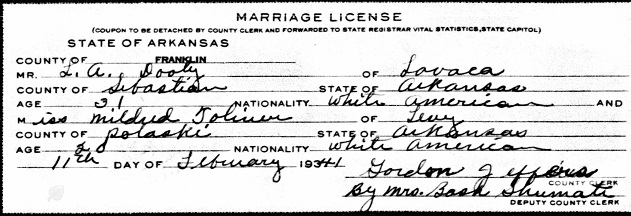 MARRIAGE LICENSE
(COUPON TO BE DETACHED BY COUNTY CLERK AND FORWARDED TO STATE REGISTRAR VITAL STATISTICS, STATE CAPITOL)
STATE OF ARKANSAS
COUNTY OF FRANKLIN
MR. L. A. Dooly OF Lavaca
COUNTY OF Sebastian STATE OF Arkansas
AGE 31 NATIONALITY White American AND
Miss Mildred Toliver OF Levy
COUNTY OF Polaski STATE OF Arkansas
AGE 20 NATIONALITY White American
11th DAY OF February 1941 Gordon
COUNTY CLERK
By Mrs. Bash Shumate
DEPUTY COUNTY CLERK